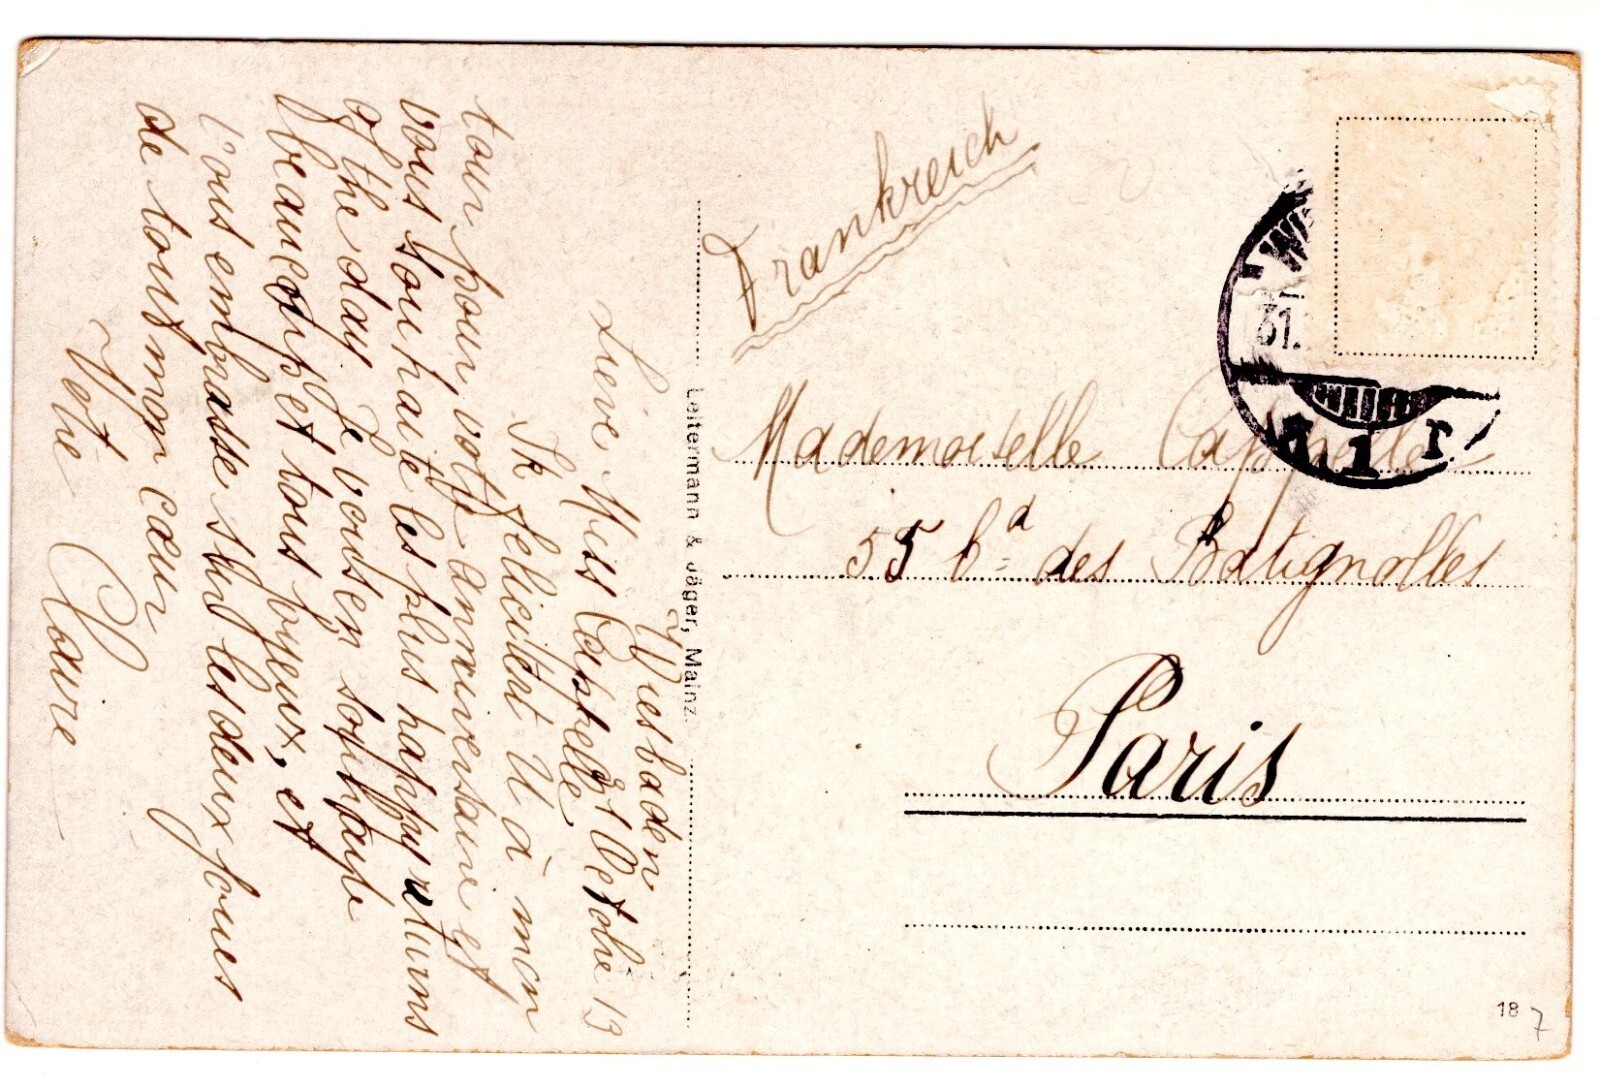 Wiesbaden
31 Octobre 13
Lieve Miss Cappelle,
Ik felicitet U à mon
tour pour votre anniversaire et
vous souhaite les plus happy returns
of the day. Je vous en souhaite
beaucoup et tous joyeux, et
vous embrasse sur les deux joues
de tout mon cœur
Claire
Leitermann & Jäger, Mainz.
Frankreich
31.
Mademoiselle Cappelle
55 bd des Batignolles
Paris
18
7